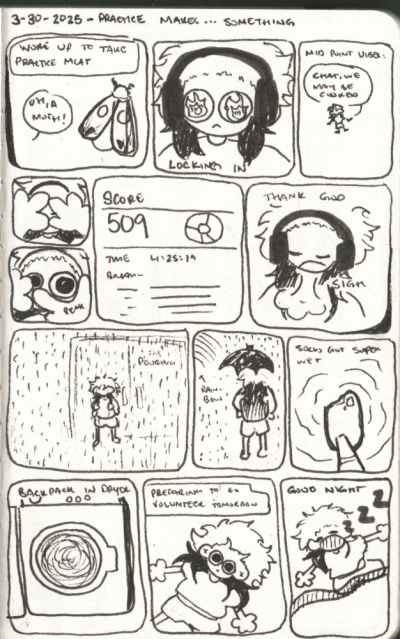 3-30-2025 - PRACTICE MAKES... SOMETHING
WOKE UP TO TAKE
PRACTICE MCAT
OH, A
MOTH!
LOCKING IN
MID POINT VIBES:
CHAT, WE
MAY BE
COOKED
PEAK
SCORE
509
TIME 4:25:19
THANK GOD
SIGH
POURING
RAIN-
BOW
SOCKS GOT SUPER
WET
BACKPACK IN DRYER
PREPARING TO GO
VOLUNTEER TOMORROW
GOOD NIGHT
Z Z Z